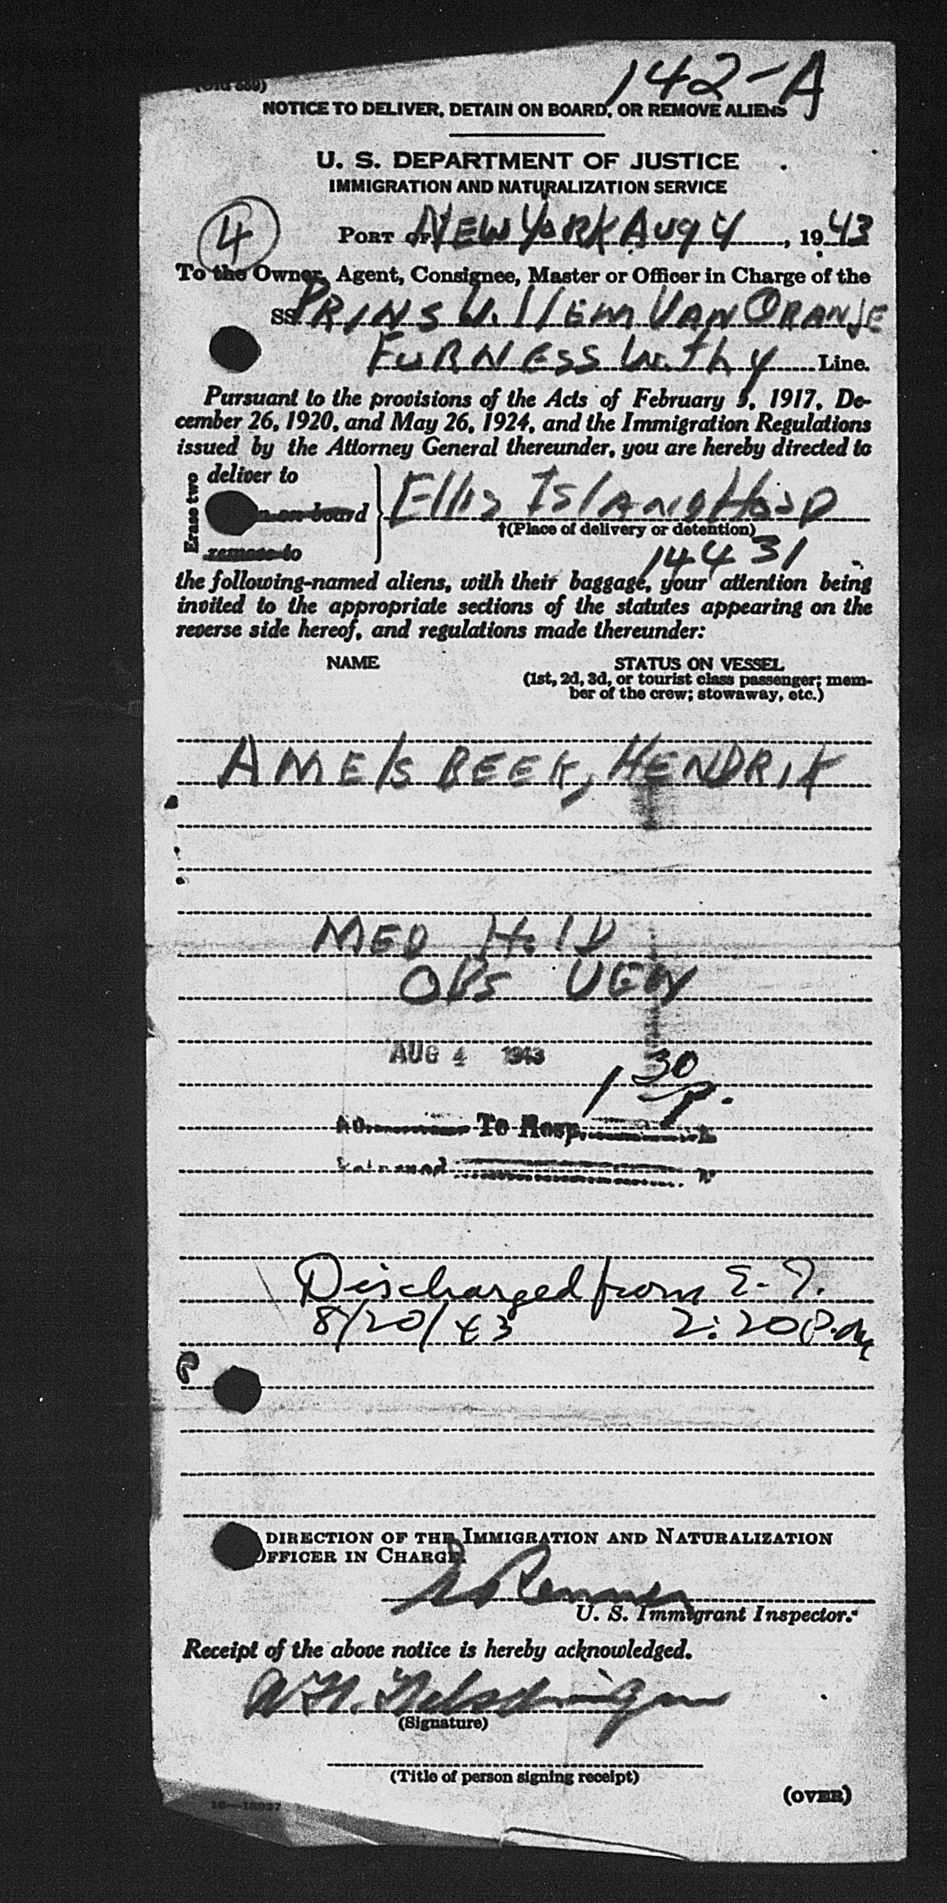 142-A
NOTICE TO DELIVER, DETAIN ON BOARD, OR REMOVE ALIENS
U. S. DEPARTMENT OF JUSTICE
IMMIGRATION AND NATURALIZATION SERVICE
4
PORT OF NEW YORK AUG 4, 1943
To the Owner, Agent, Consignee, Master or Officer in Charge of the
SS PRINS WILLEM VAN ORANJE
FURNESS WITHY Line.
Pursuant to the provisions of the Acts of February 5, 1917, De-
cember 26, 1920, and May 26, 1924, and the Immigration Regulations
issued by the Attorney General thereunder, you are hereby directed to
Erase two
deliver to
on board
remove to
Ellis Island Hosp
†(Place of delivery or detention)
14431
the following-named aliens, with their baggage, your attention being
invited to the appropriate sections of the statutes appearing on the
reverse side hereof, and regulations made thereunder:
NAME STATUS ON VESSEL
(1st, 2d, 3d, or tourist class passenger; mem-
ber of the crew; stowaway, etc.)
AMELSBEEK, HENDRIK
MED HOLD
OBS
AUG 4 1943
1 30 P.
To Hosp.
Discharged from E. I.
8/20/43 2:20 P.M.
DIRECTION OF THE IMMIGRATION AND NATURALIZATION
OFFICER IN CHARGE.
U. S. Immigrant Inspector.
Receipt of the above notice is hereby acknowledged.
(Signature)
(Title of person signing receipt)
(OVER)